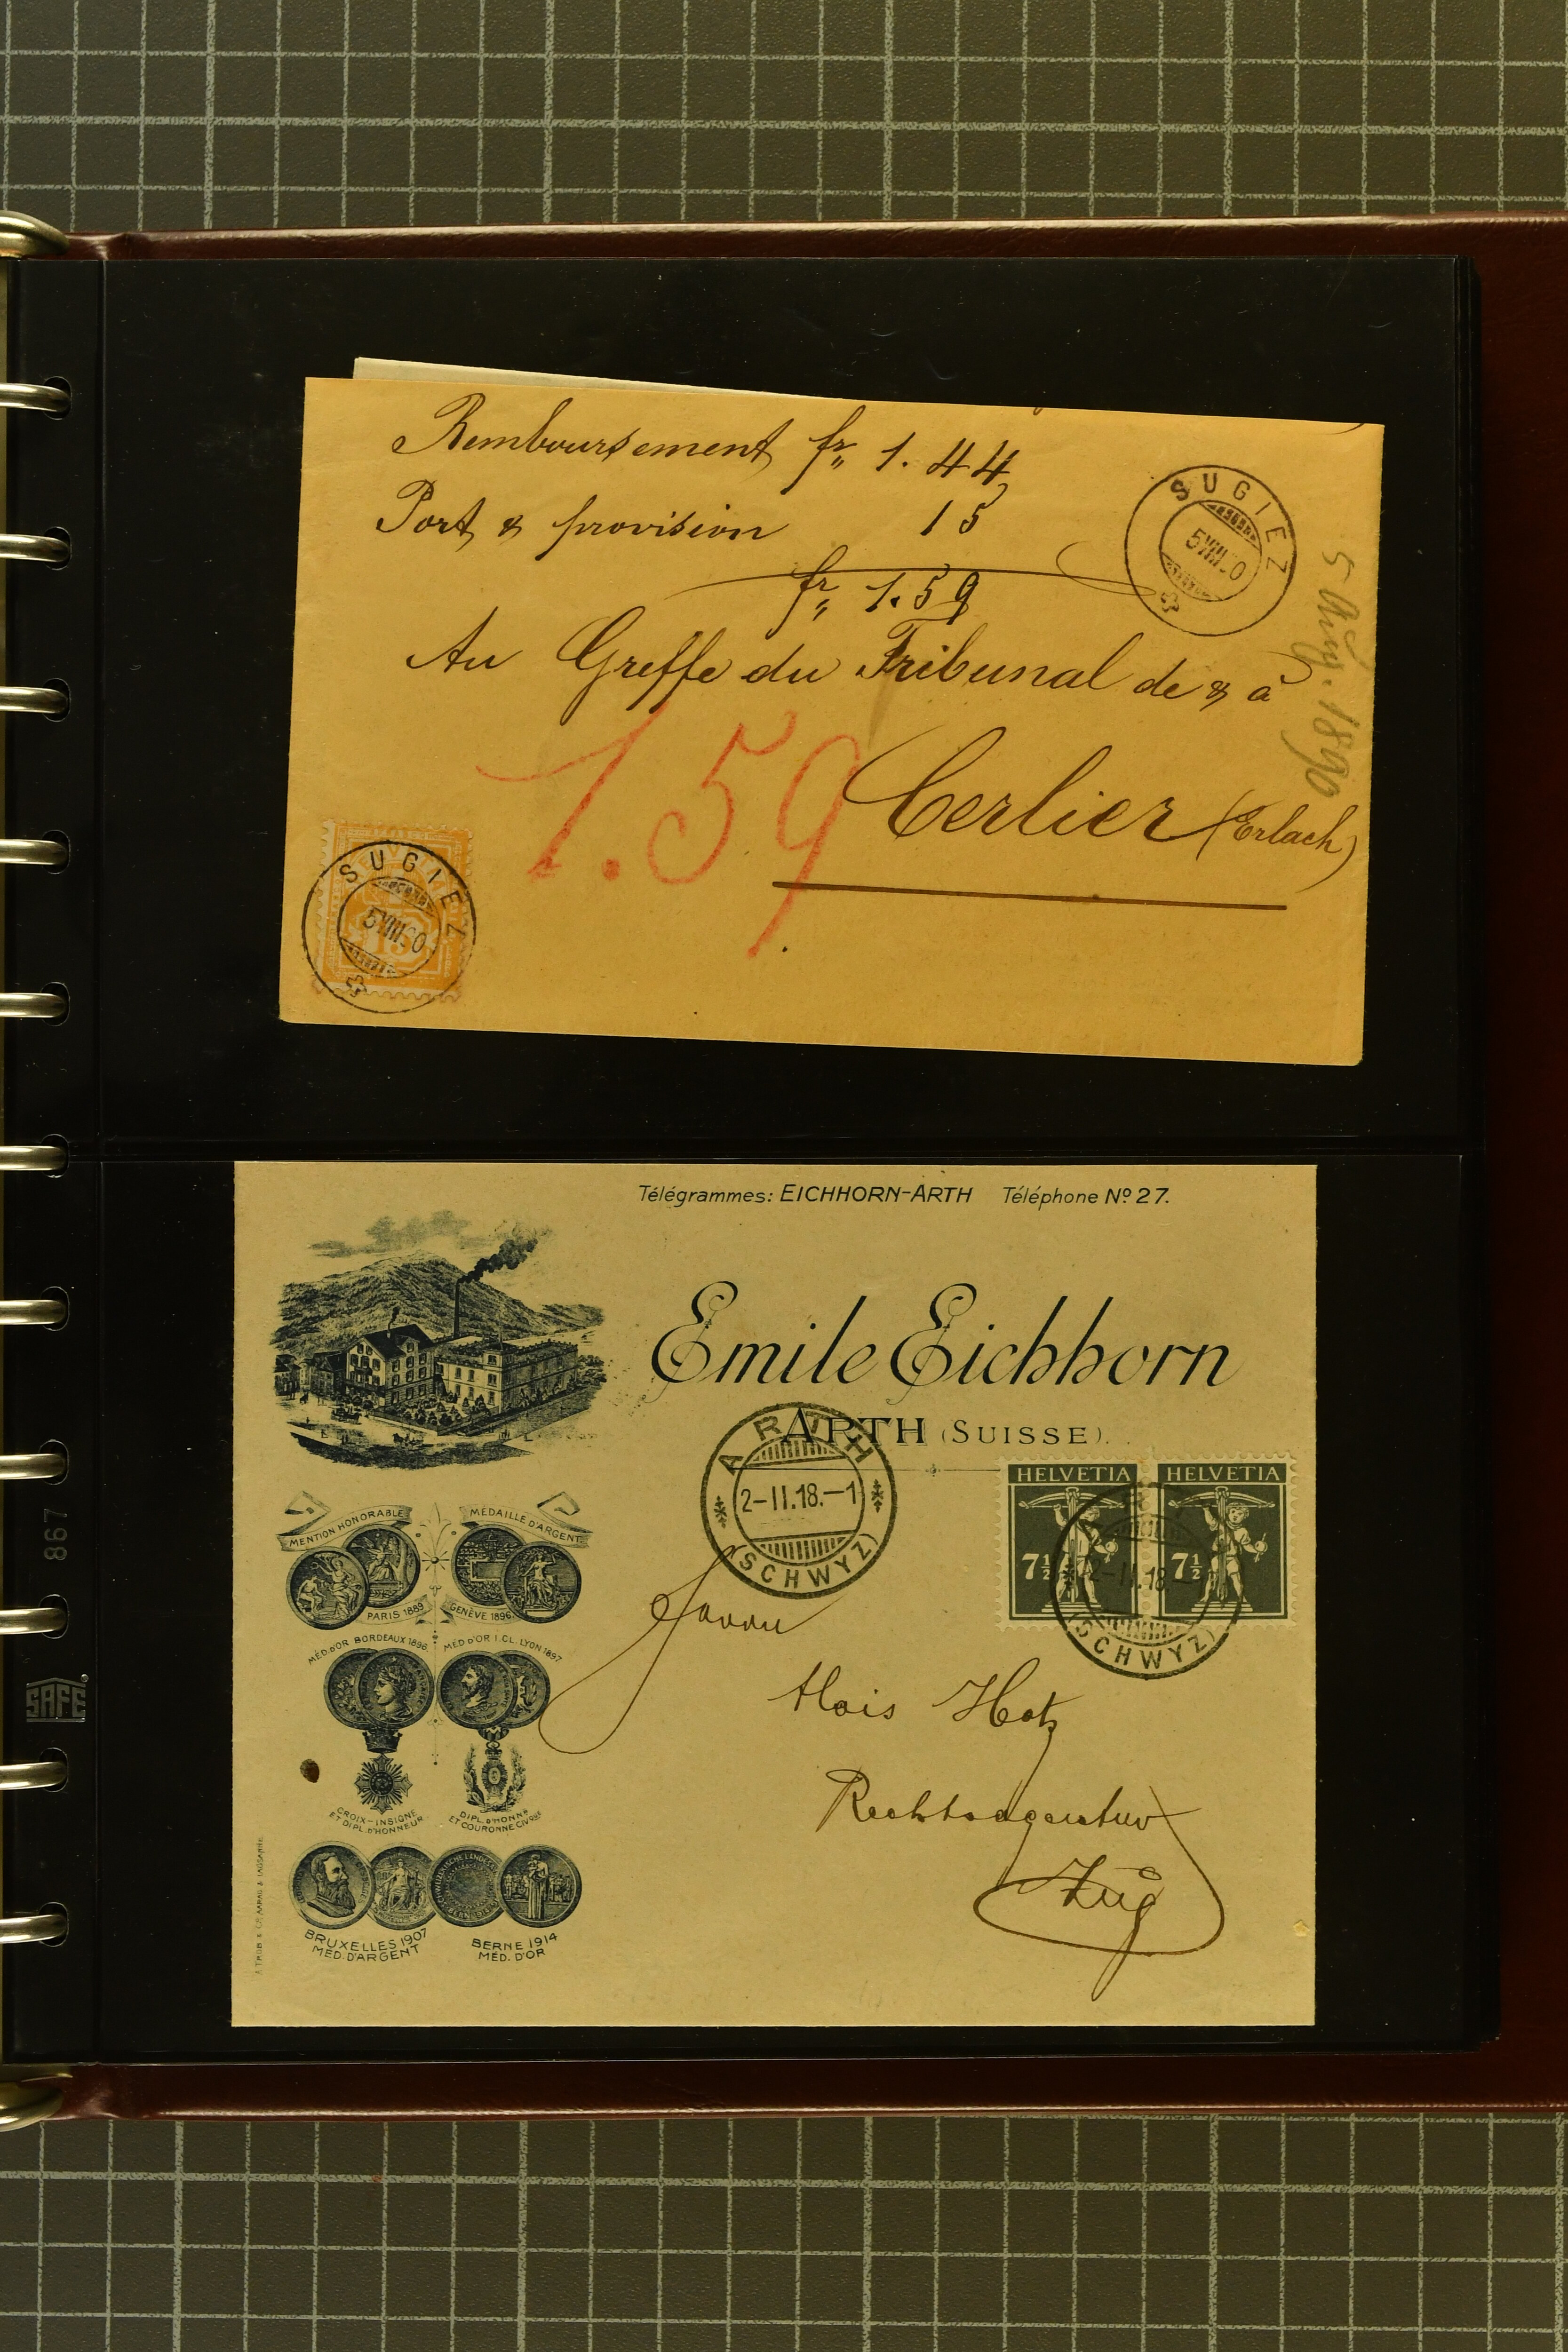 Remboursement fr„ 1. 44
Port & provision 15
fr„ 1.59
Au Greffe du Tribunal de & à
Cerlier (Erlach)
1.59
SUGIEZ
5 VIII 0
5 Aug. 1890
SUGIEZ
5 VIII 0
15
Télégrammes: EICHHORN-ARTH Téléphone Nº 27.
Emile Eichhorn
ARTH (SUISSE).
ARTH
2-II.18.-1
(SCHWYZ)
HELVETIA HELVETIA
7½ 7½
2-II.18
(SCHWYZ)
Herrn
Alois Hotz
Rechtsagentur
Zug
MENTION HONORABLE
PARIS 1889
MÉDAILLE D'ARGENT
GENÈVE 1896
MÉD. D'OR BORDEAUX 1896
MÉD D'OR I.CL. LYON 1897
CROIX-INSIGNE
ET DIPL. D'HONNEUR
DIPL. D'HONNR
ET COURONNE CIVQUE
BRUXELLES 1907
MÉD. D'ARGENT
BERNE 1914
MÉD. D'OR
867
SAFE